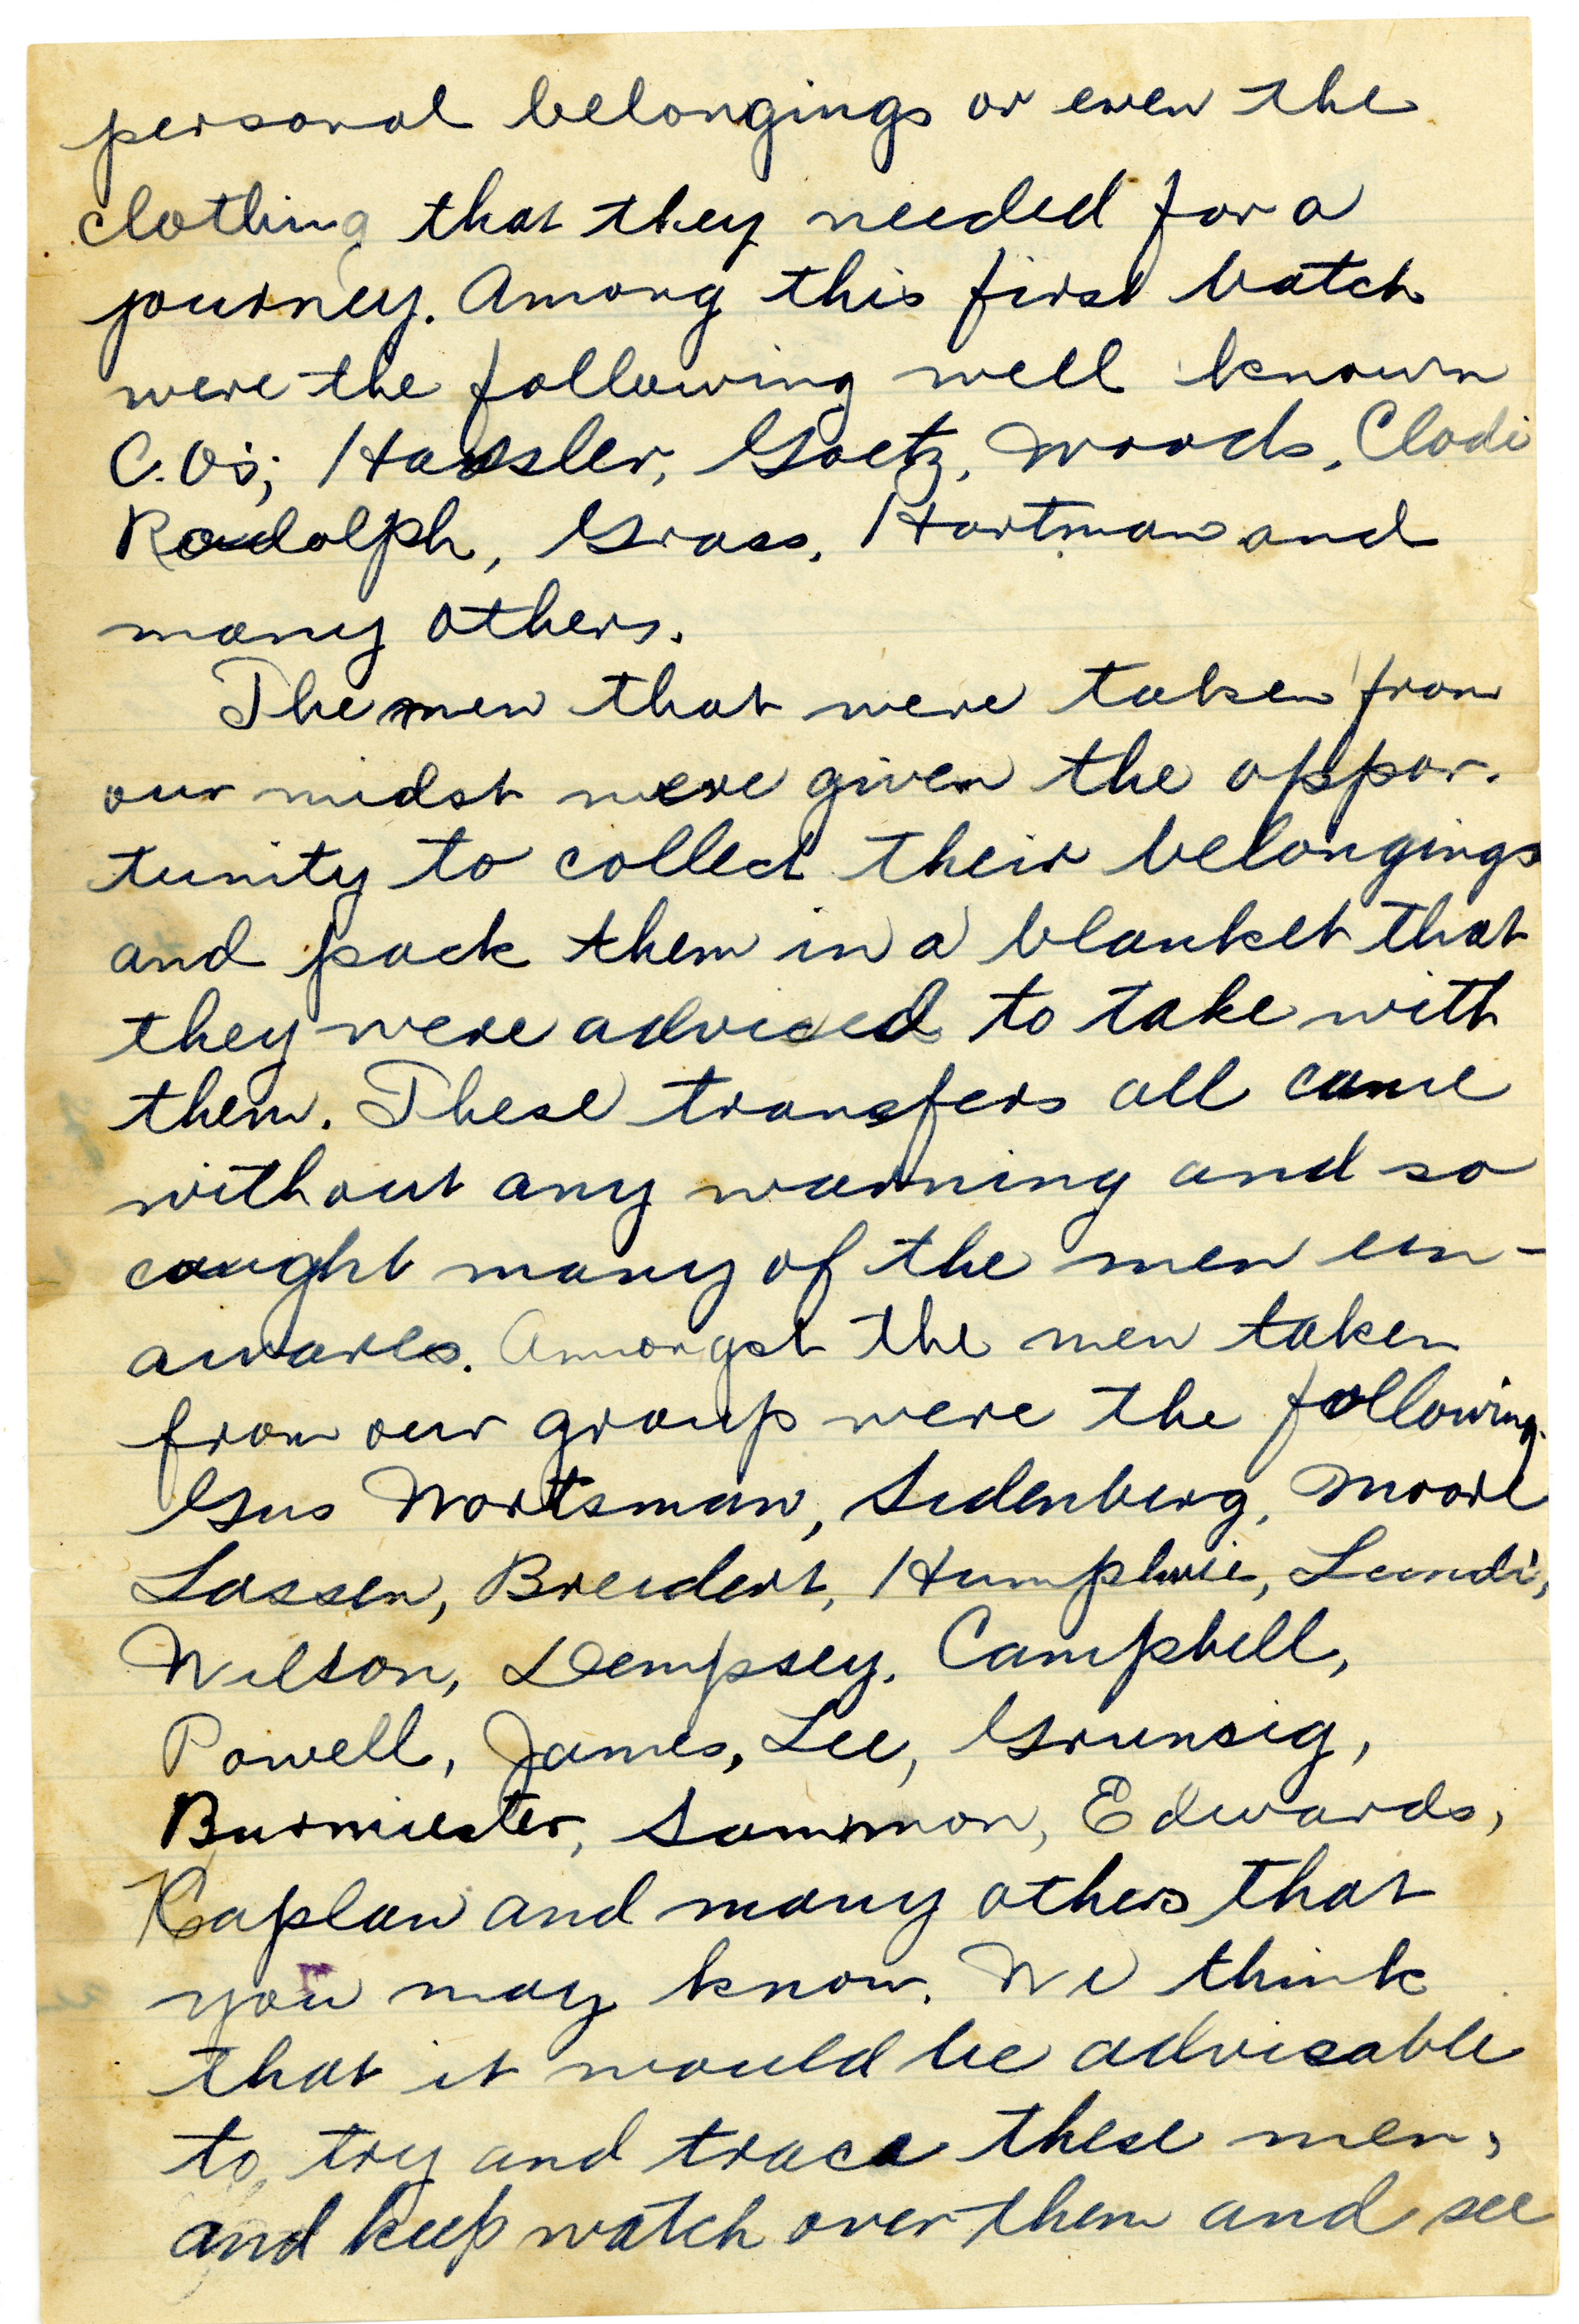 personal belongings or even the
clothing that they needed for a
journey. Among this first batch
were the following well known
C.O's; Hassler, Goetz, Woods, Clodi
Rodolph, Grass, Hartman and
many others.
The men that were taken from
our midst were given the oppor-
tunity to collect their belongings
and pack them in a blanket that
they were advised to take with
them. These transfers all came
without any warning and so
caught many of the men un-
awares. Amongst the men taken
from our group were the following.
Gus Wortsman, Sidenberg, Moore
Lassen, Breidert, Humphrie, Lundi,
Wilson, Dempsey, Campbell,
Powell, James, Lee, Grunsig,
Burmiester, Sammon, Edwards,
Kaplan and many others that
you may know. We think
that it would be advisable
to try and trace these men,
and keep watch over them and see